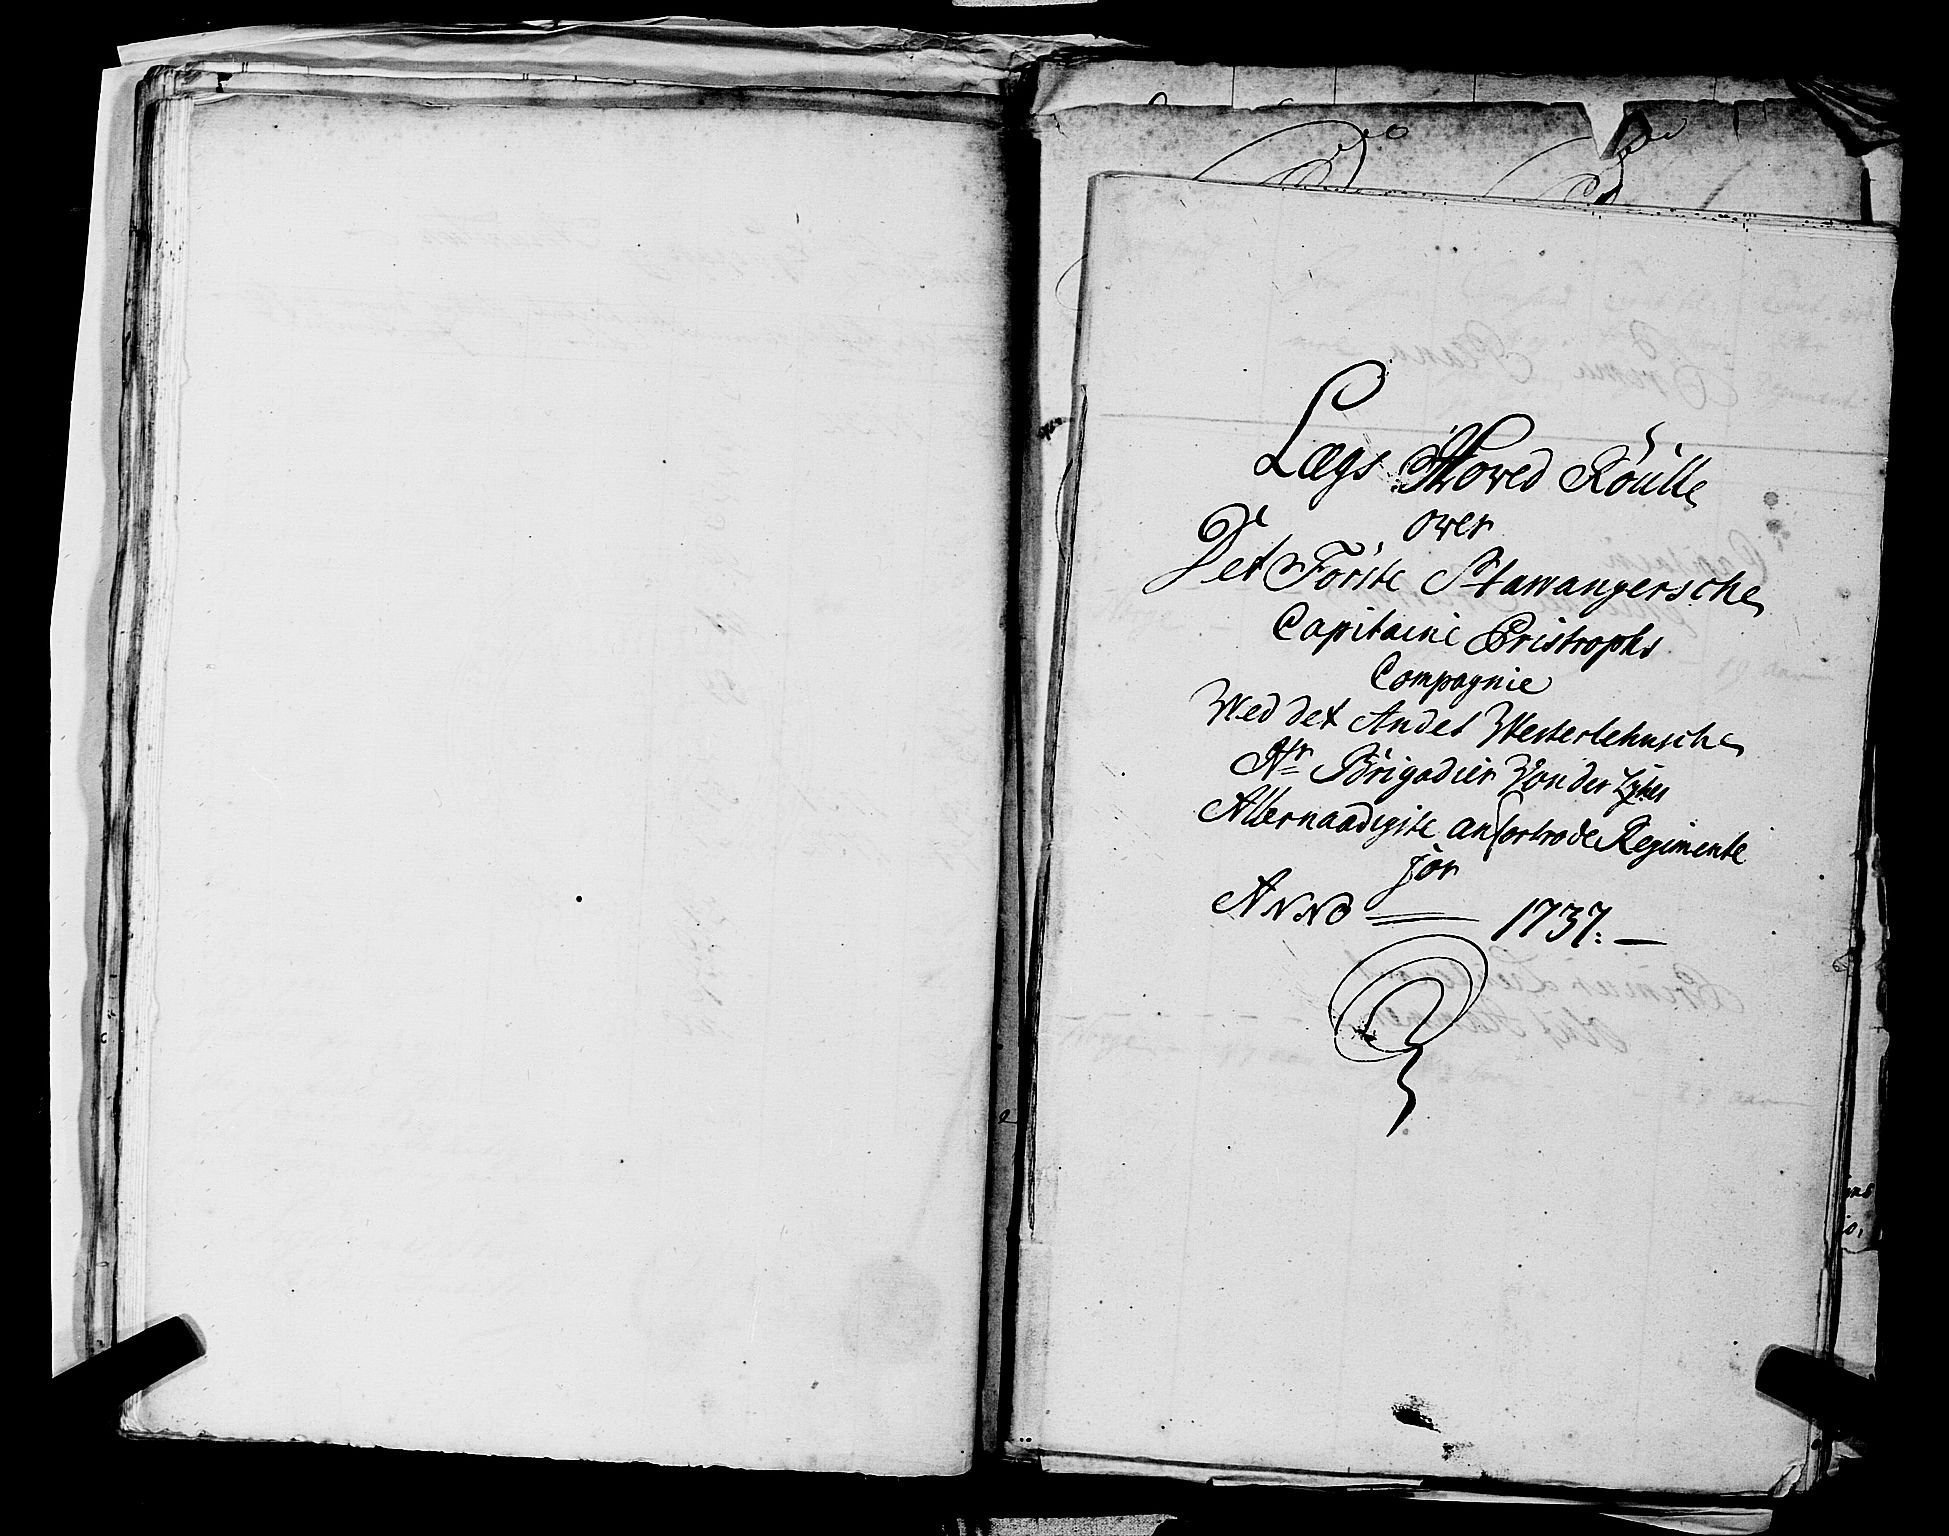 Lægs Hoved Roulle
over
Det Förste Stawangersche
Capitaine Cristrophs
Compagnie
Wed det Andet Westerlehnsche
Hr Brigadier Von der
Allernaadigste anfortrode Regimente
for
ANNO 1737.